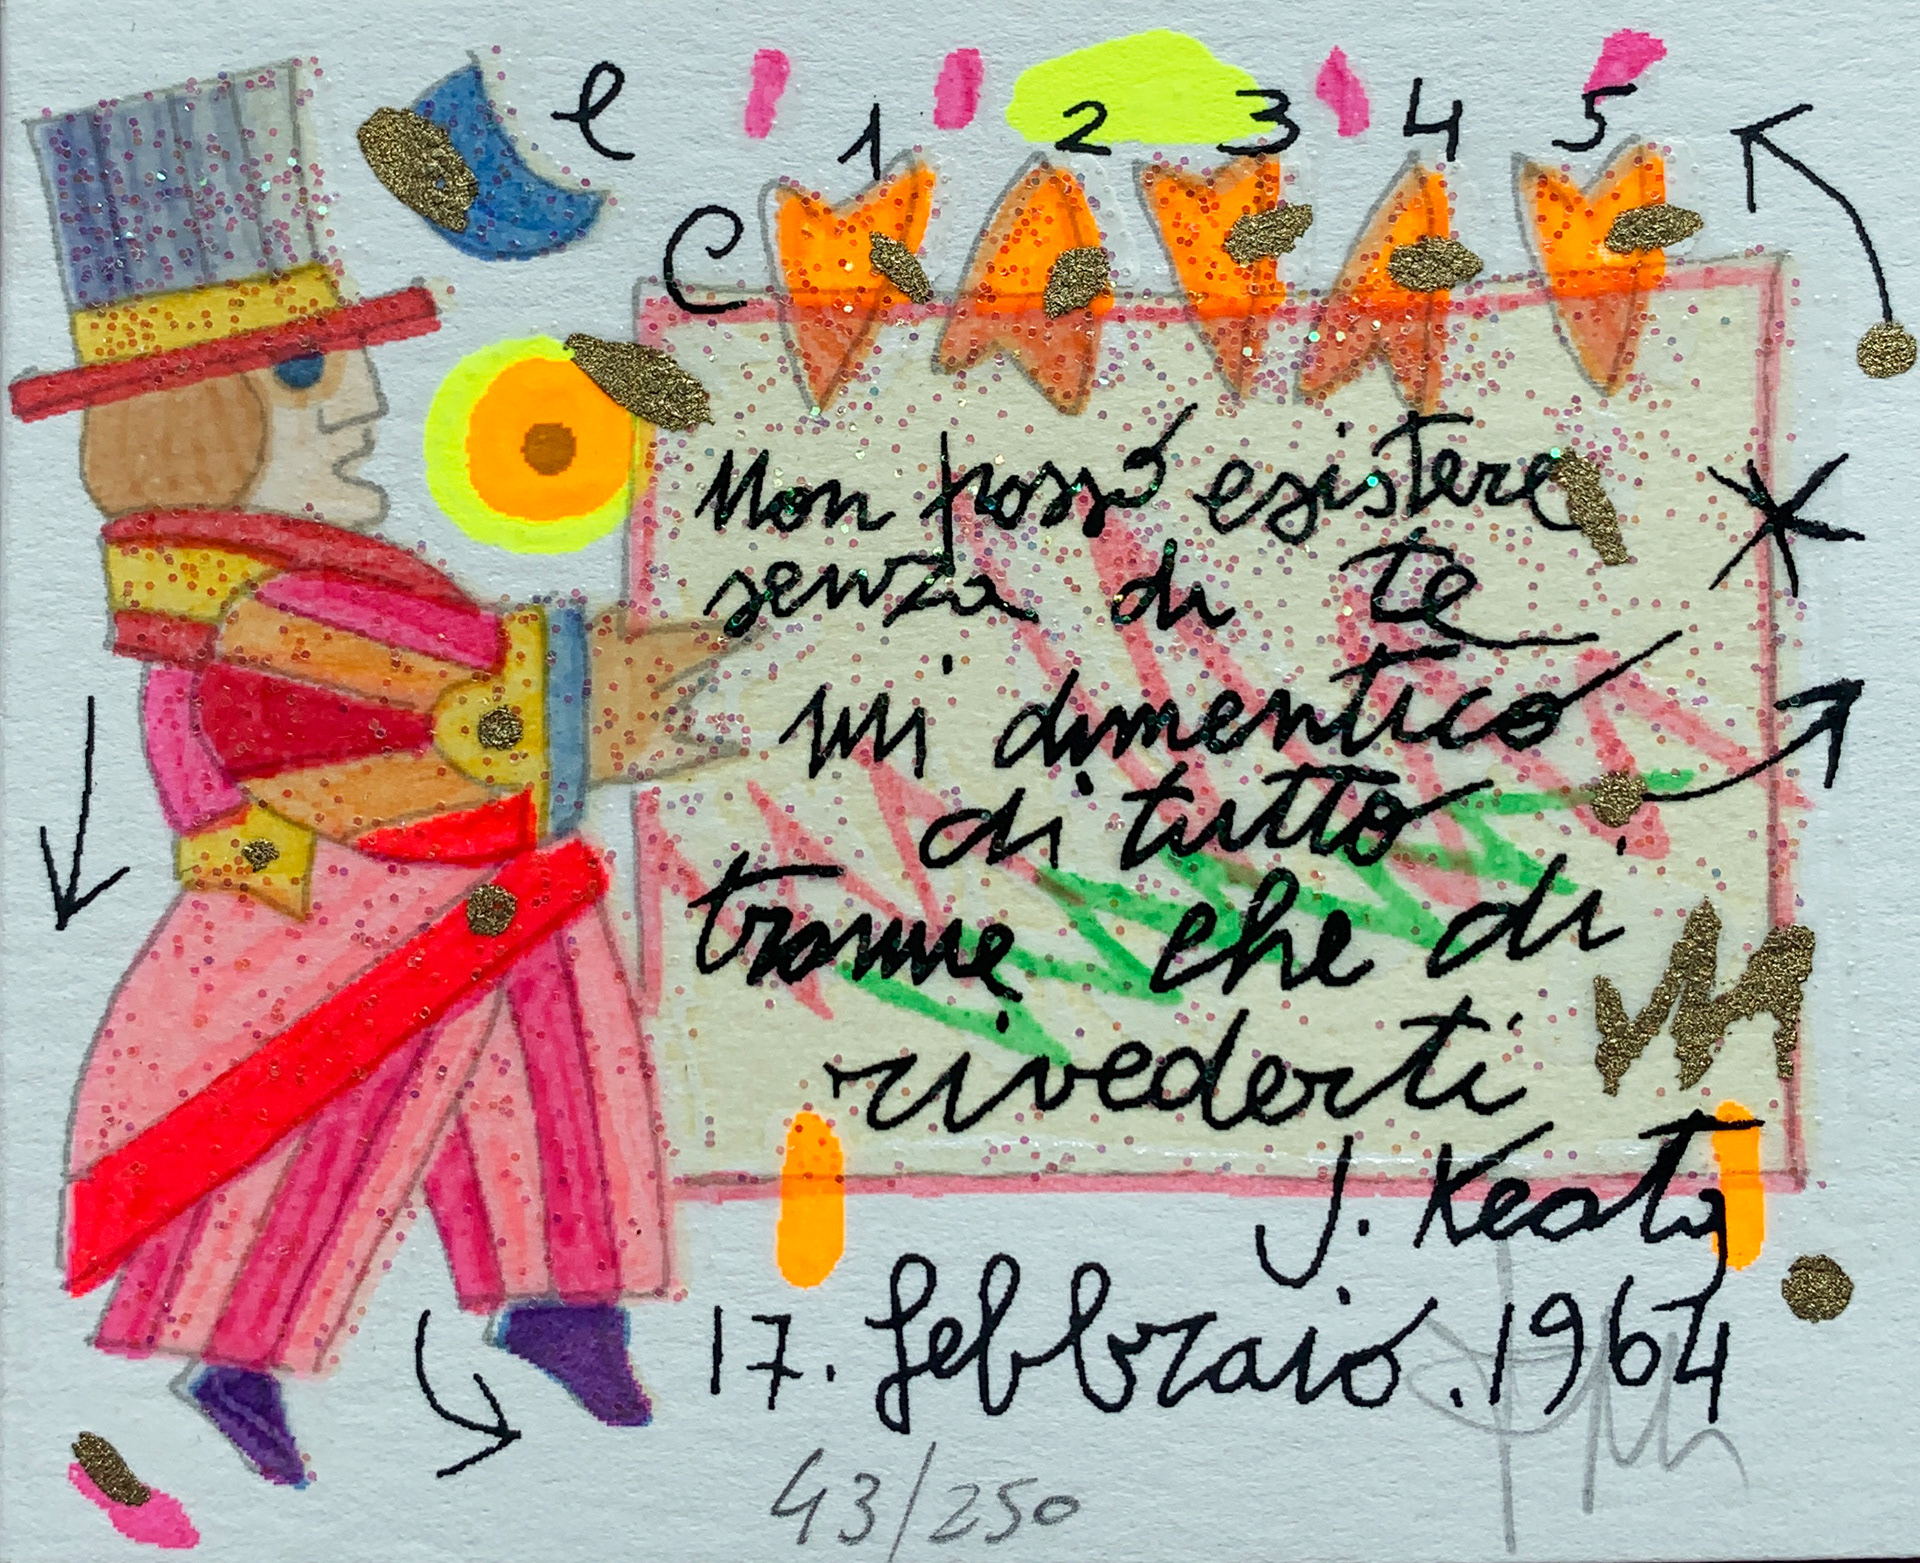 e 1 2 3 4 5
C
Non posso esistere
senza di te
mi dimentico
di tutto
tranne che di
rivederti
J. Keats
17. febbraio. 1964
43/250